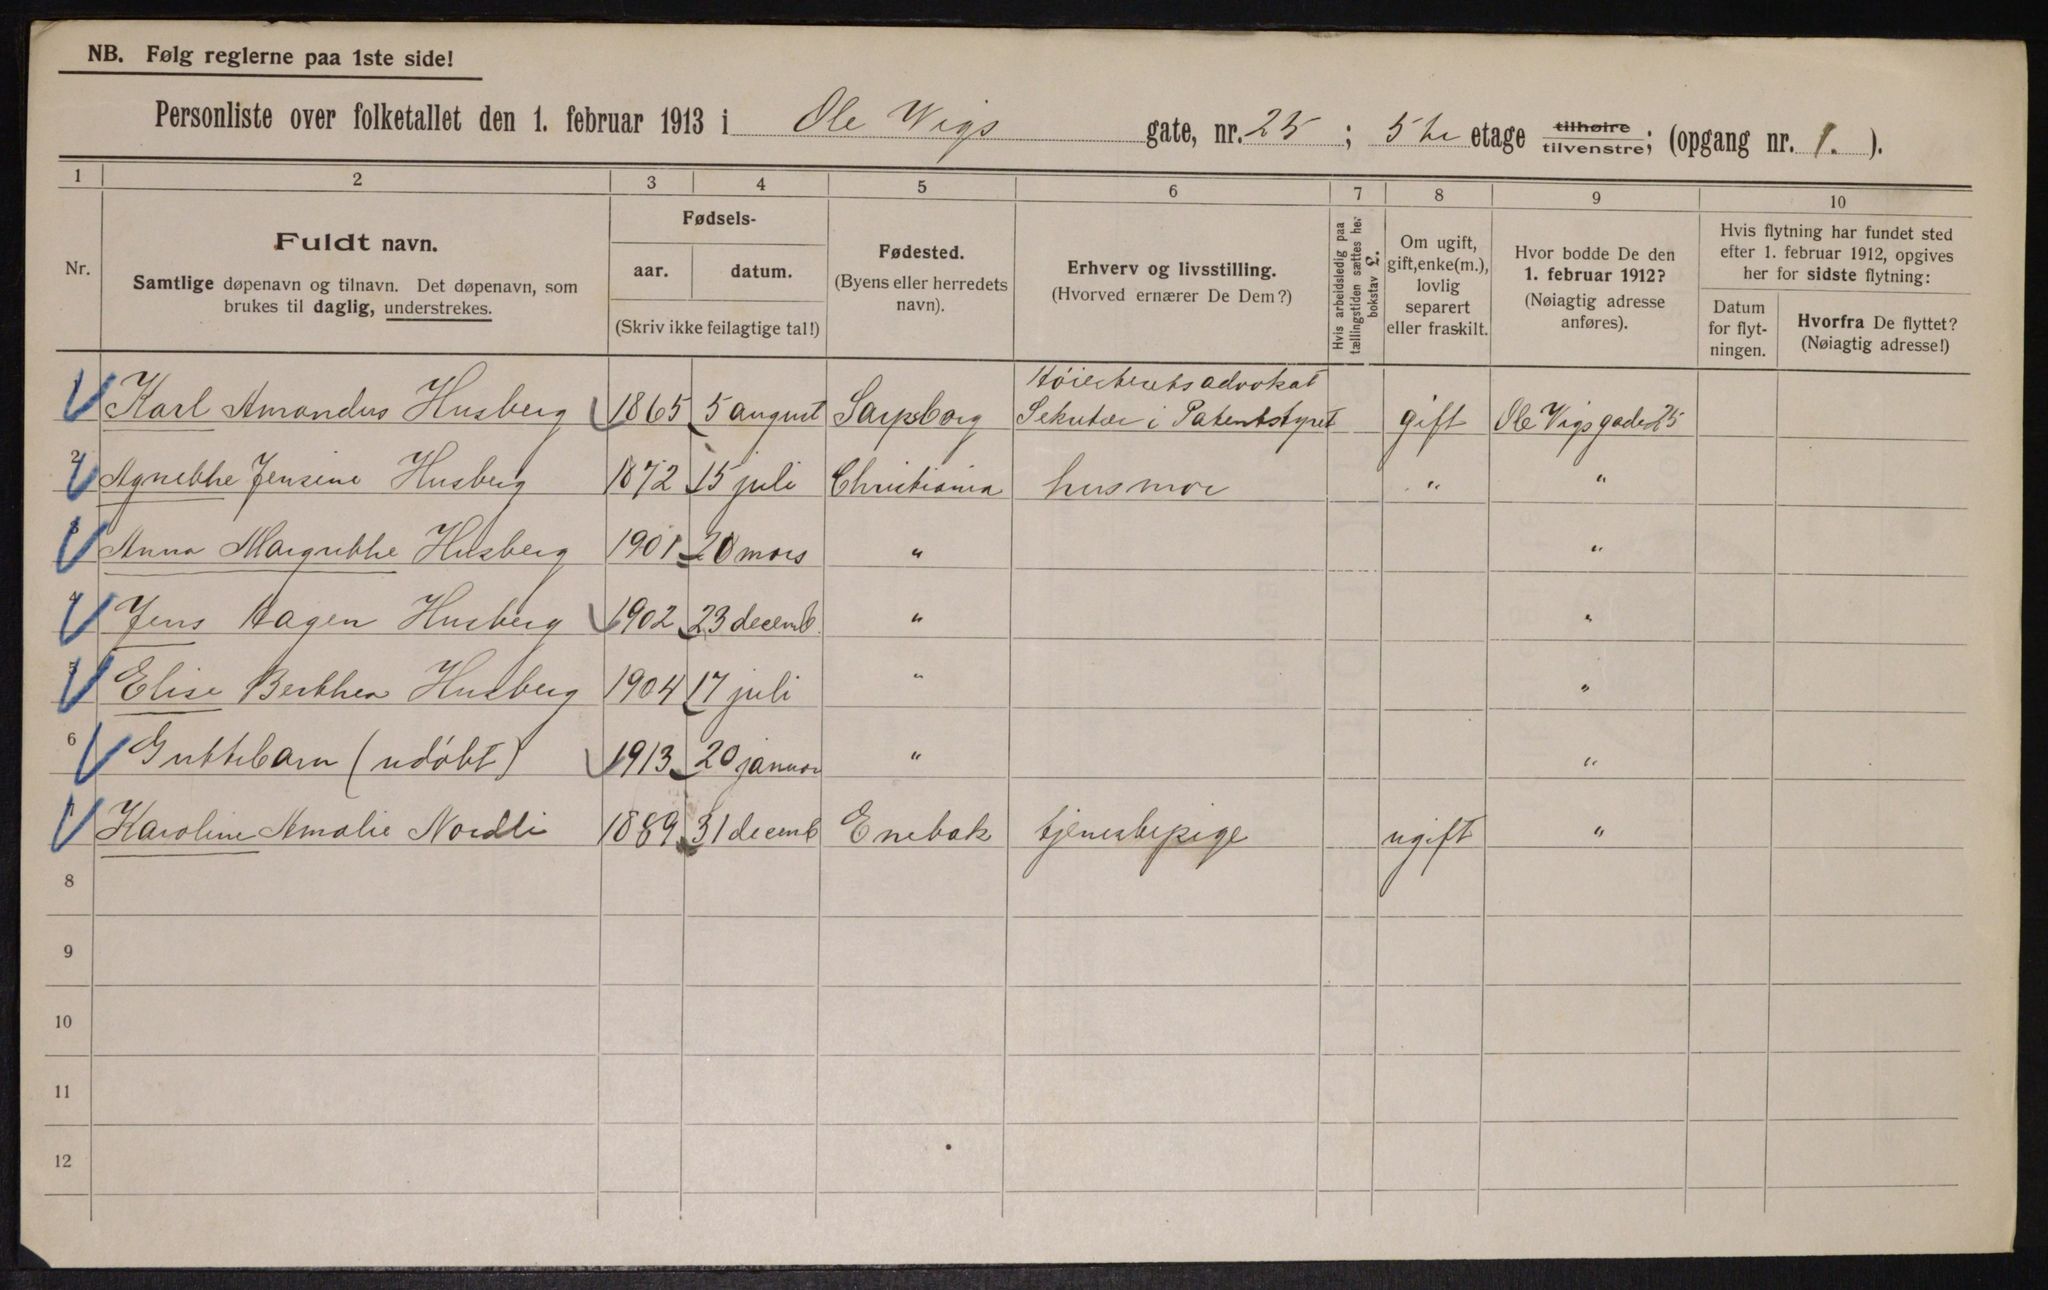 NB. Følg reglerne paa 1ste side!
Personliste over folketallet den 1. februar 1913 i Ole Vigs gate, nr. 25; 5te etage tilhøire tilvenstre; (opgang nr. 1.).
1 2 3 4 5 6 7 8 9 10
Nr.
Fuldt navn.
Samtlige døpenavn og tilnavn. Det døpenavn, som
brukes til daglig, understrekes.
Fødsels-
aar. datum.
(Skriv ikke feilagtige tal!)
Fødested.
(Byens eller herredets
navn).
Erhverv og livsstilling.
(Hvorved ernærer De Dem?)
Hvis arbeidsledig paa
tællingstiden sættes her
bokstav L.
Om ugift,
gift, enke(m.),
lovlig
separert
eller fraskilt.
Hvor bodde De den
1. februar 1912?
(Nøiagtig adresse
anføres).
Hvis flytning har fundet sted
efter 1. februar 1912, opgives
her for sidste flytning:
Datum
for flyt-
ningen.
Hvorfra De flyttet?
(Nøiagtig adresse!)
Høiesteretsadvokat
1 Karl Amandus Husberg 1865 5 august Sarpsborg Sekretær i Patentstyret gift Ole Vigs gade 25
2 Agnethe Jensine Husberg 1872 15 juli Christiania husmor " "
3 Anna Margrethe Husberg 1901 20 mars " "
4 Jens Hagen Husberg 1902 23 decemb. " "
5 Elise Berthea Husberg 1904 17 juli " "
6 Guttebarn (udøbt) 1913 20 januar " "
7 Karoline Amalie Nordli 1889 31 decemb Enebak tjenestepige ugift "
8
9
10
11
12